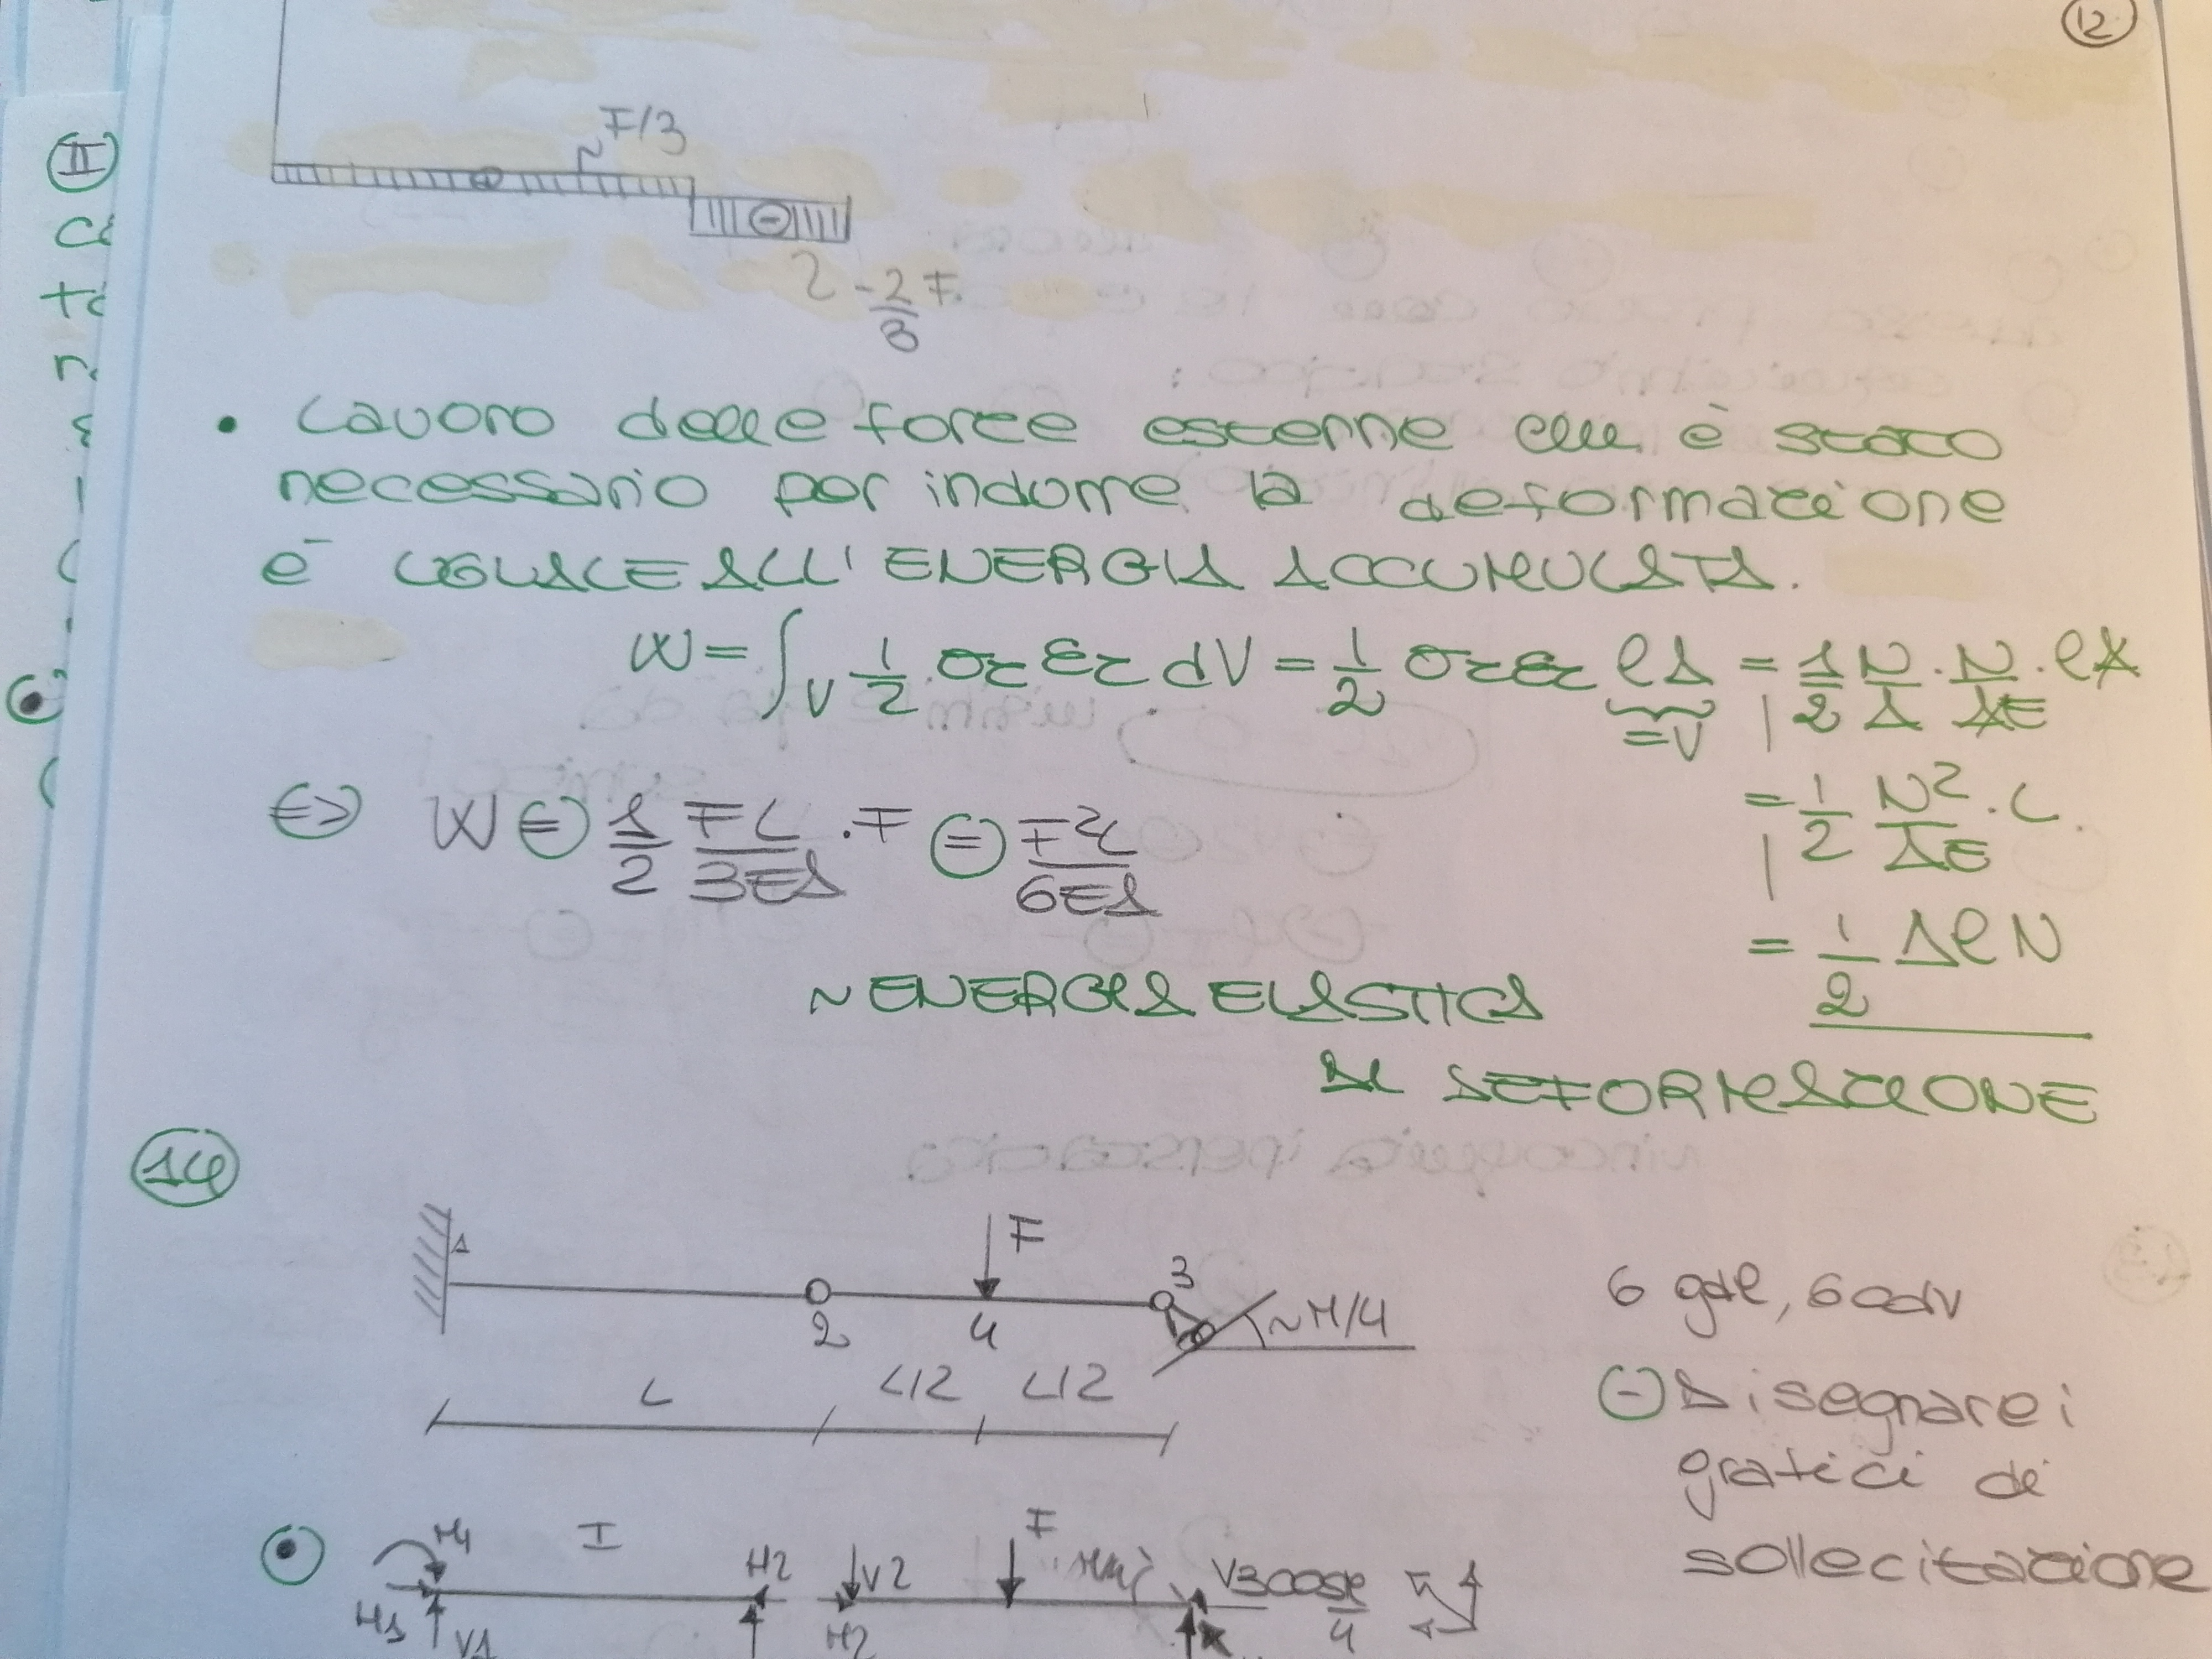 12
F/3
-2/3 F
II
• Lavoro delle forze esterne che è stato
necessario per indurre la deformazione
è UGUALE ALL' ENERGIA ACCUMULATA.
W = ∫V 1/2 σz εz dV = 1/2 σz εz lA = 1/2 N/A · N/AE · lA
=V
= 1/2 N²/AE · L
⇔ W = 1/2 FL/3EA · F = F²L/6EA
= 1/2 Δl N
~ ENERGIA ELASTICA
DI DEFORMAZIONE
14
F
1 2 4 3 ~π/4
6 gdl, 6 cdv
L L/2 L/2
Disegnare i
grafici di
sollecitazione
M1 I H2 V2 F V3cosπ/4
H1 V1 H2